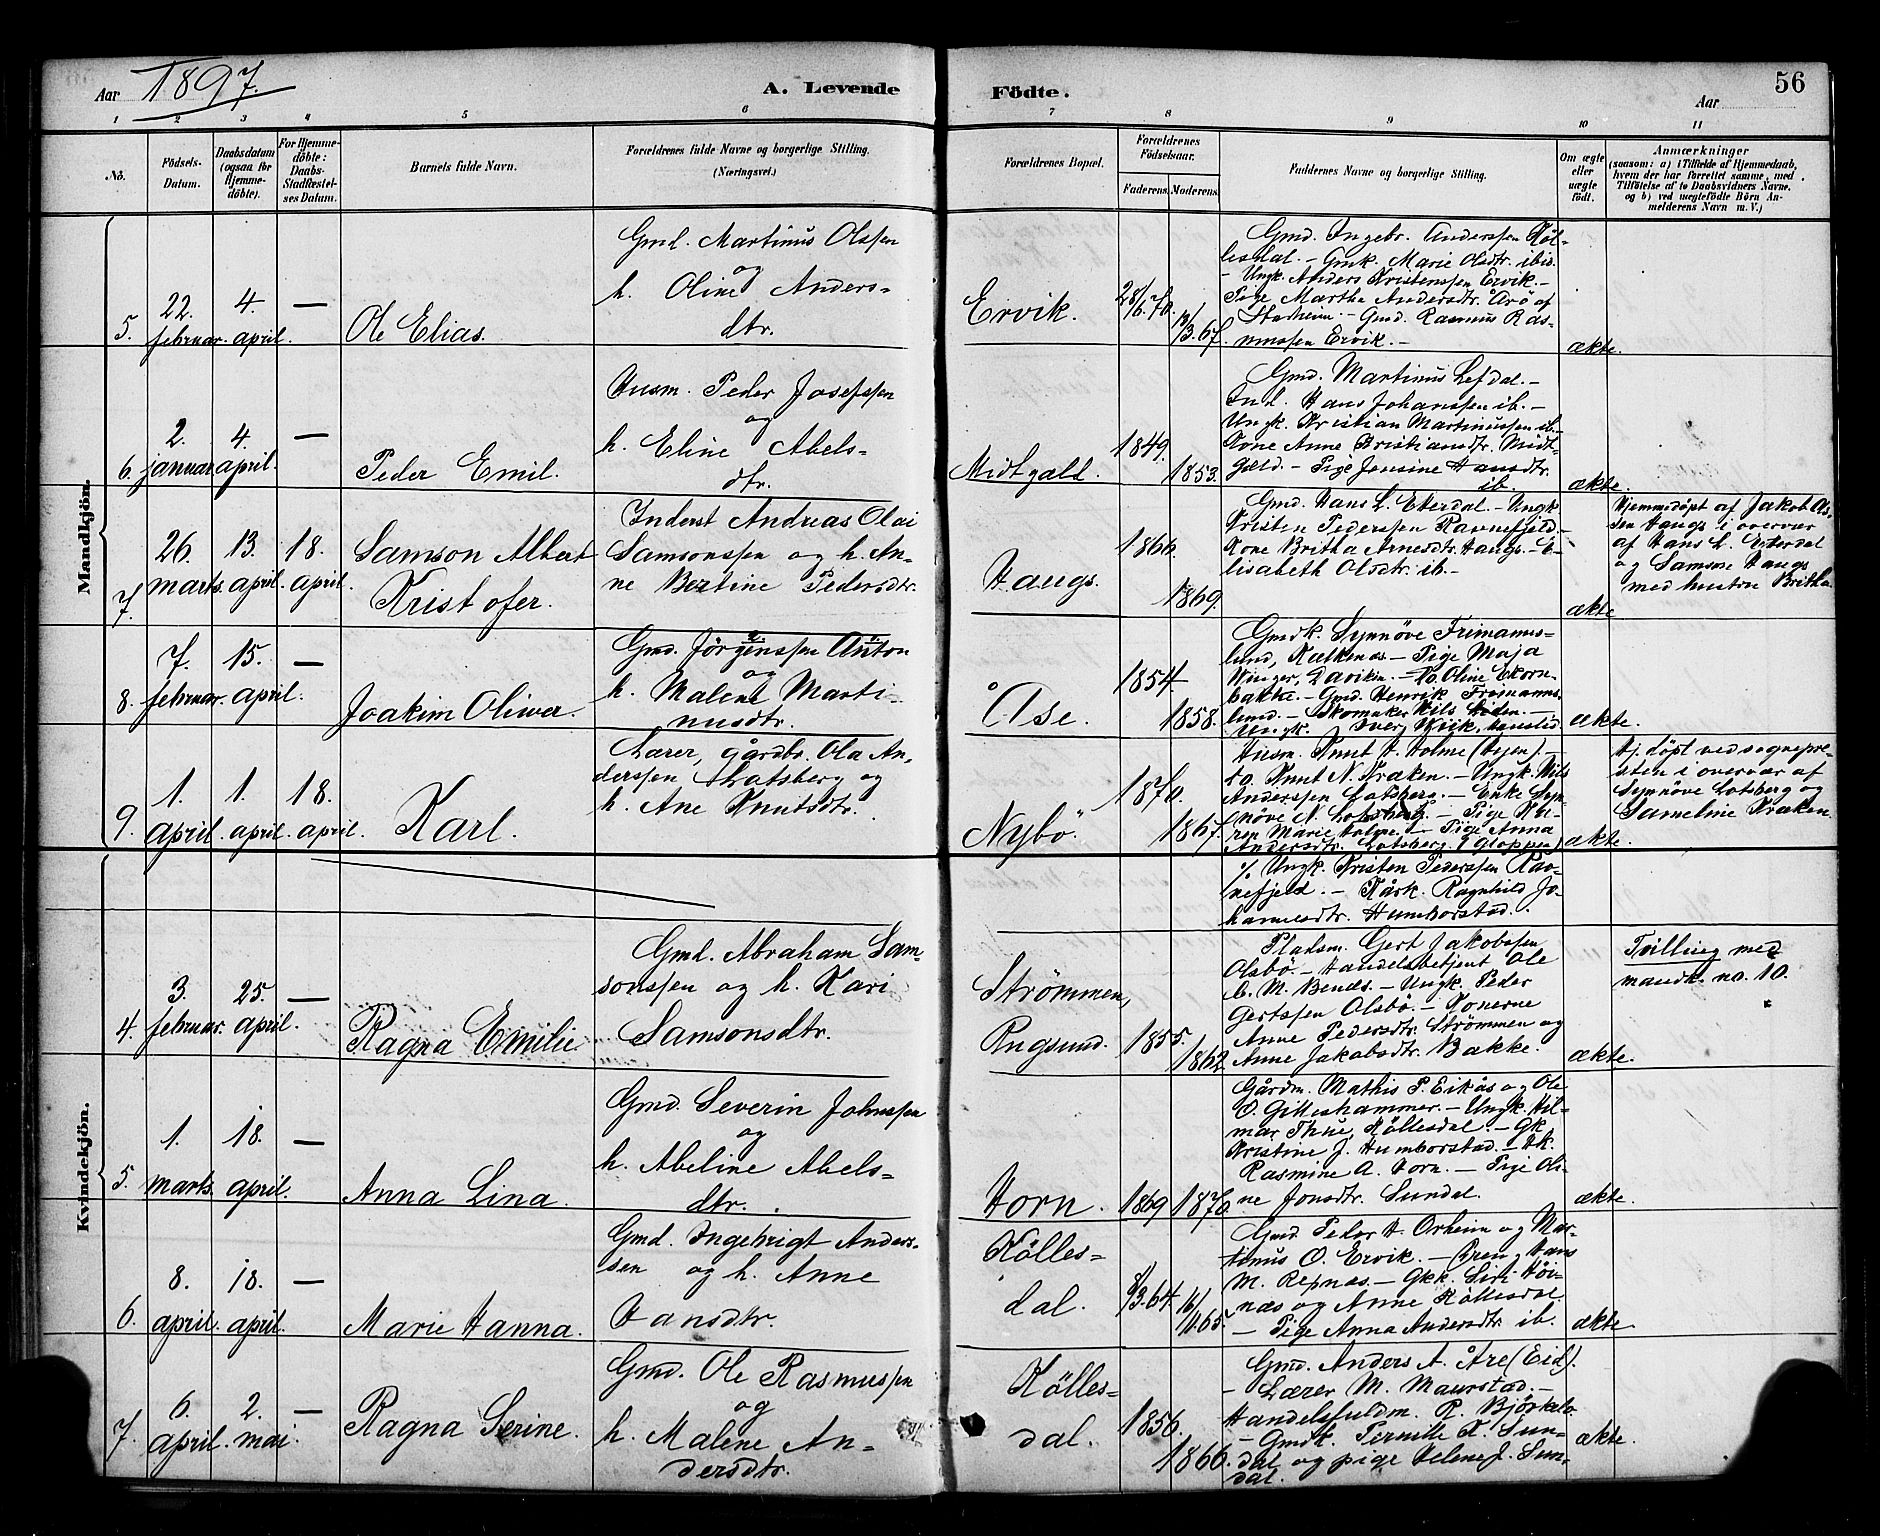 Aar 1897. A. Levende Födte. Aar 56
1 2 3 4 5 6 7 8 9 10 11
No.
Födsels-
Datum.
Daabsdatum
(ogsaa for
Hjemme-
döbte).
For Hjemme-
döbte:
Daabs-
Stadfæstel-
ses Datum.
Barnets fulde Navn.
Forældrenes fulde Navne og borgerlige Stilling.
(Næringsvei.)
Forældrenes Bopæl.
Forældrenes
Födselsaar.
Faderens. Moderens.
Faddernes Navne og borgerlige Stilling.
Om ægte
eller
uægte
födt.
Anmærkninger
(saasom: a) i Tilfælde af Hjemmedaab,
hvem der har forrettet samme, med
Tilföielse af to Daabsvidners Navne.
og b) ved uægtefödte Börn An-
melderens Navn m. V.)
Mandkjön.
5. 22. februar. 4. april. —
Ole Elias.
Gmd. Martinus Olssen
og
h. Oline Anders-
dtr.
Ervik.
28/6.70. 13/3.67.
Gmd. Ingebr. Anderssen Köl-
lesdal. – Gmk. Marie Olsdtr. ibid.
– Ungk. Anders Kristenssen Ervik. –
Pige Martha Andersdtr. Årö af
Stadheim. – Gmd. Rasmus Ras-
mussen Ervik. –
ækte.
6. 2. januar. 4. april. —
Peder Emil.
Husm. Peder Josefssen
og
h. Eline Abels-
dtr.
Midtgald.
1849. 1853.
Gmd. Martinus Lefdal. –
Ind. Hans Johanssen ib. –
Ungk. Kristian Martinussen ib. –
Kone Anne Kristiansdtr. Midt-
gald. – Pige Jensine Hansdtr.
ib.
ækte.
7. 26. marts. 13. april. 18. april.
Samson Albert
Kristofer.
Inderst Andreas Olai
Samsonssen og h. An-
ne Bertine Pedersdtr.
Haugs.
1866. 1869.
Gmd. Hans L. Ekerdal. – Ungk.
Kristen Pederssen Ravnefjeld. –
Kone Britha Arnesdtr. Haugs. – E-
lisabeth Olsdtr. ib. –
ækte.
Hjemmedöpt af Jakob Ols-
sen Haugs i overvær
af Hans L. Ekerdal
og Samson Haugs
med hustru Britha.
8. 7. februar. 15. april. —
Joakim Oliver.
Gmd. Jörgenssen Anton
og
h. Malene Marti-
nusdtr.
Åse.
1854. 1858.
Gmdk. Synnöve Frimanns-
lund, Kalkenes. – Pige Maja
Winger, Daviken. – Do. Oline Ekorn-
bakke. – Gmd. Henrik Frimanns-
lund. – Skomaker Nils Liden. –
Ungk. Iver Kviik,
ækte.
9. 1. april. 1. april. 18. april.
Karl.
Lærer, gårdbr. Ola An-
derssen Lotsberg og
h. Ane Knutsdtr.
Nybö.
1870. 1867.
Husm. Knut H. Holme (Hyen). –
to. Knut N. Kraken. – Ungk. Nils
Anderssen Lotsberg. – Enke Syn-
növe N. Lotsberg. – Pige Ka-
ren Marie Holme. – Pige Anna
Andersdtr. Lotsberg. (Gloppen)
ækte.
Hj. döpt ved sognepre-
sten i overvær af
Synnöve Lotsberg og
Sameline Kraken.
% Ungk. Kristen Pederssen Rav-
nefjeld. – Kårk. Ragnhild Jo-
hannesdtr. Humborstad.
Kvindekjön.
4. 3. februar. 25. april. —
Ragna Emilie
Gmd. Abraham Sam-
sonssen og h. Kari
Samsonsdtr.
Strömmen,
Rugsund.
1855. 1862
Pladsm. Gert Jakobssen
Olsbö. – Handelsbetjent Ole
C. M. Benæs. – Ungk. Peder
Gertssen Olsbö. – Konerne
Anne Pedersdtr. Strömmen og
Anne Jakobsdtr. Bakke.
ækte.
Tvilling med
mandk. no. 10.
5. 1. marts. 18. april. —
Anna Lina.
Gmd. Severin Johnssen
og
h. Abeline Abels-
dtr.
Horn.
1869 1870.
Gårdm. Mathis P. Eikås og Ole
O. Gilleshammer. – Ungk. Hil-
mar Thue, Köllesdal. – Gk.
Kristine J. Humborstad. – Hk.
Rasmine A. Horn. – Pige Oli-
ne Jonsdtr. Sundal.
ækte.
6. 8. april. 18. april. —
Marie Hanna.
Gmd. Ingebrigt Anders-
sen og h. Anne
Hansdtr.
Kölles-
dal.
8/3.64. 16/11.65.
Gmd. Peder H. Orheim og Mar-
tinus O. Ervik. – Dreng Hans
M. Repnæs. – Gkk. Siri Höi-
næs og Anne Köllesdal.
– Pige Anna Andersdtr ib.
ækte.
7. 6. april. 2. mai. —
Ragna Serine.
Gmd. Ole Rasmussen
og
h. Malene An-
dersdtr.
Kölles-
dal.
1856. 1866.
Gmd. Anders A. Åre (Eid).
– Lærer M. Maurstad. –
Handelsfuldm. R. Björkelo.
– Gmdk. Pernille K. Sun-
dal og pige Helene J. Sun-
dal.
ækte.